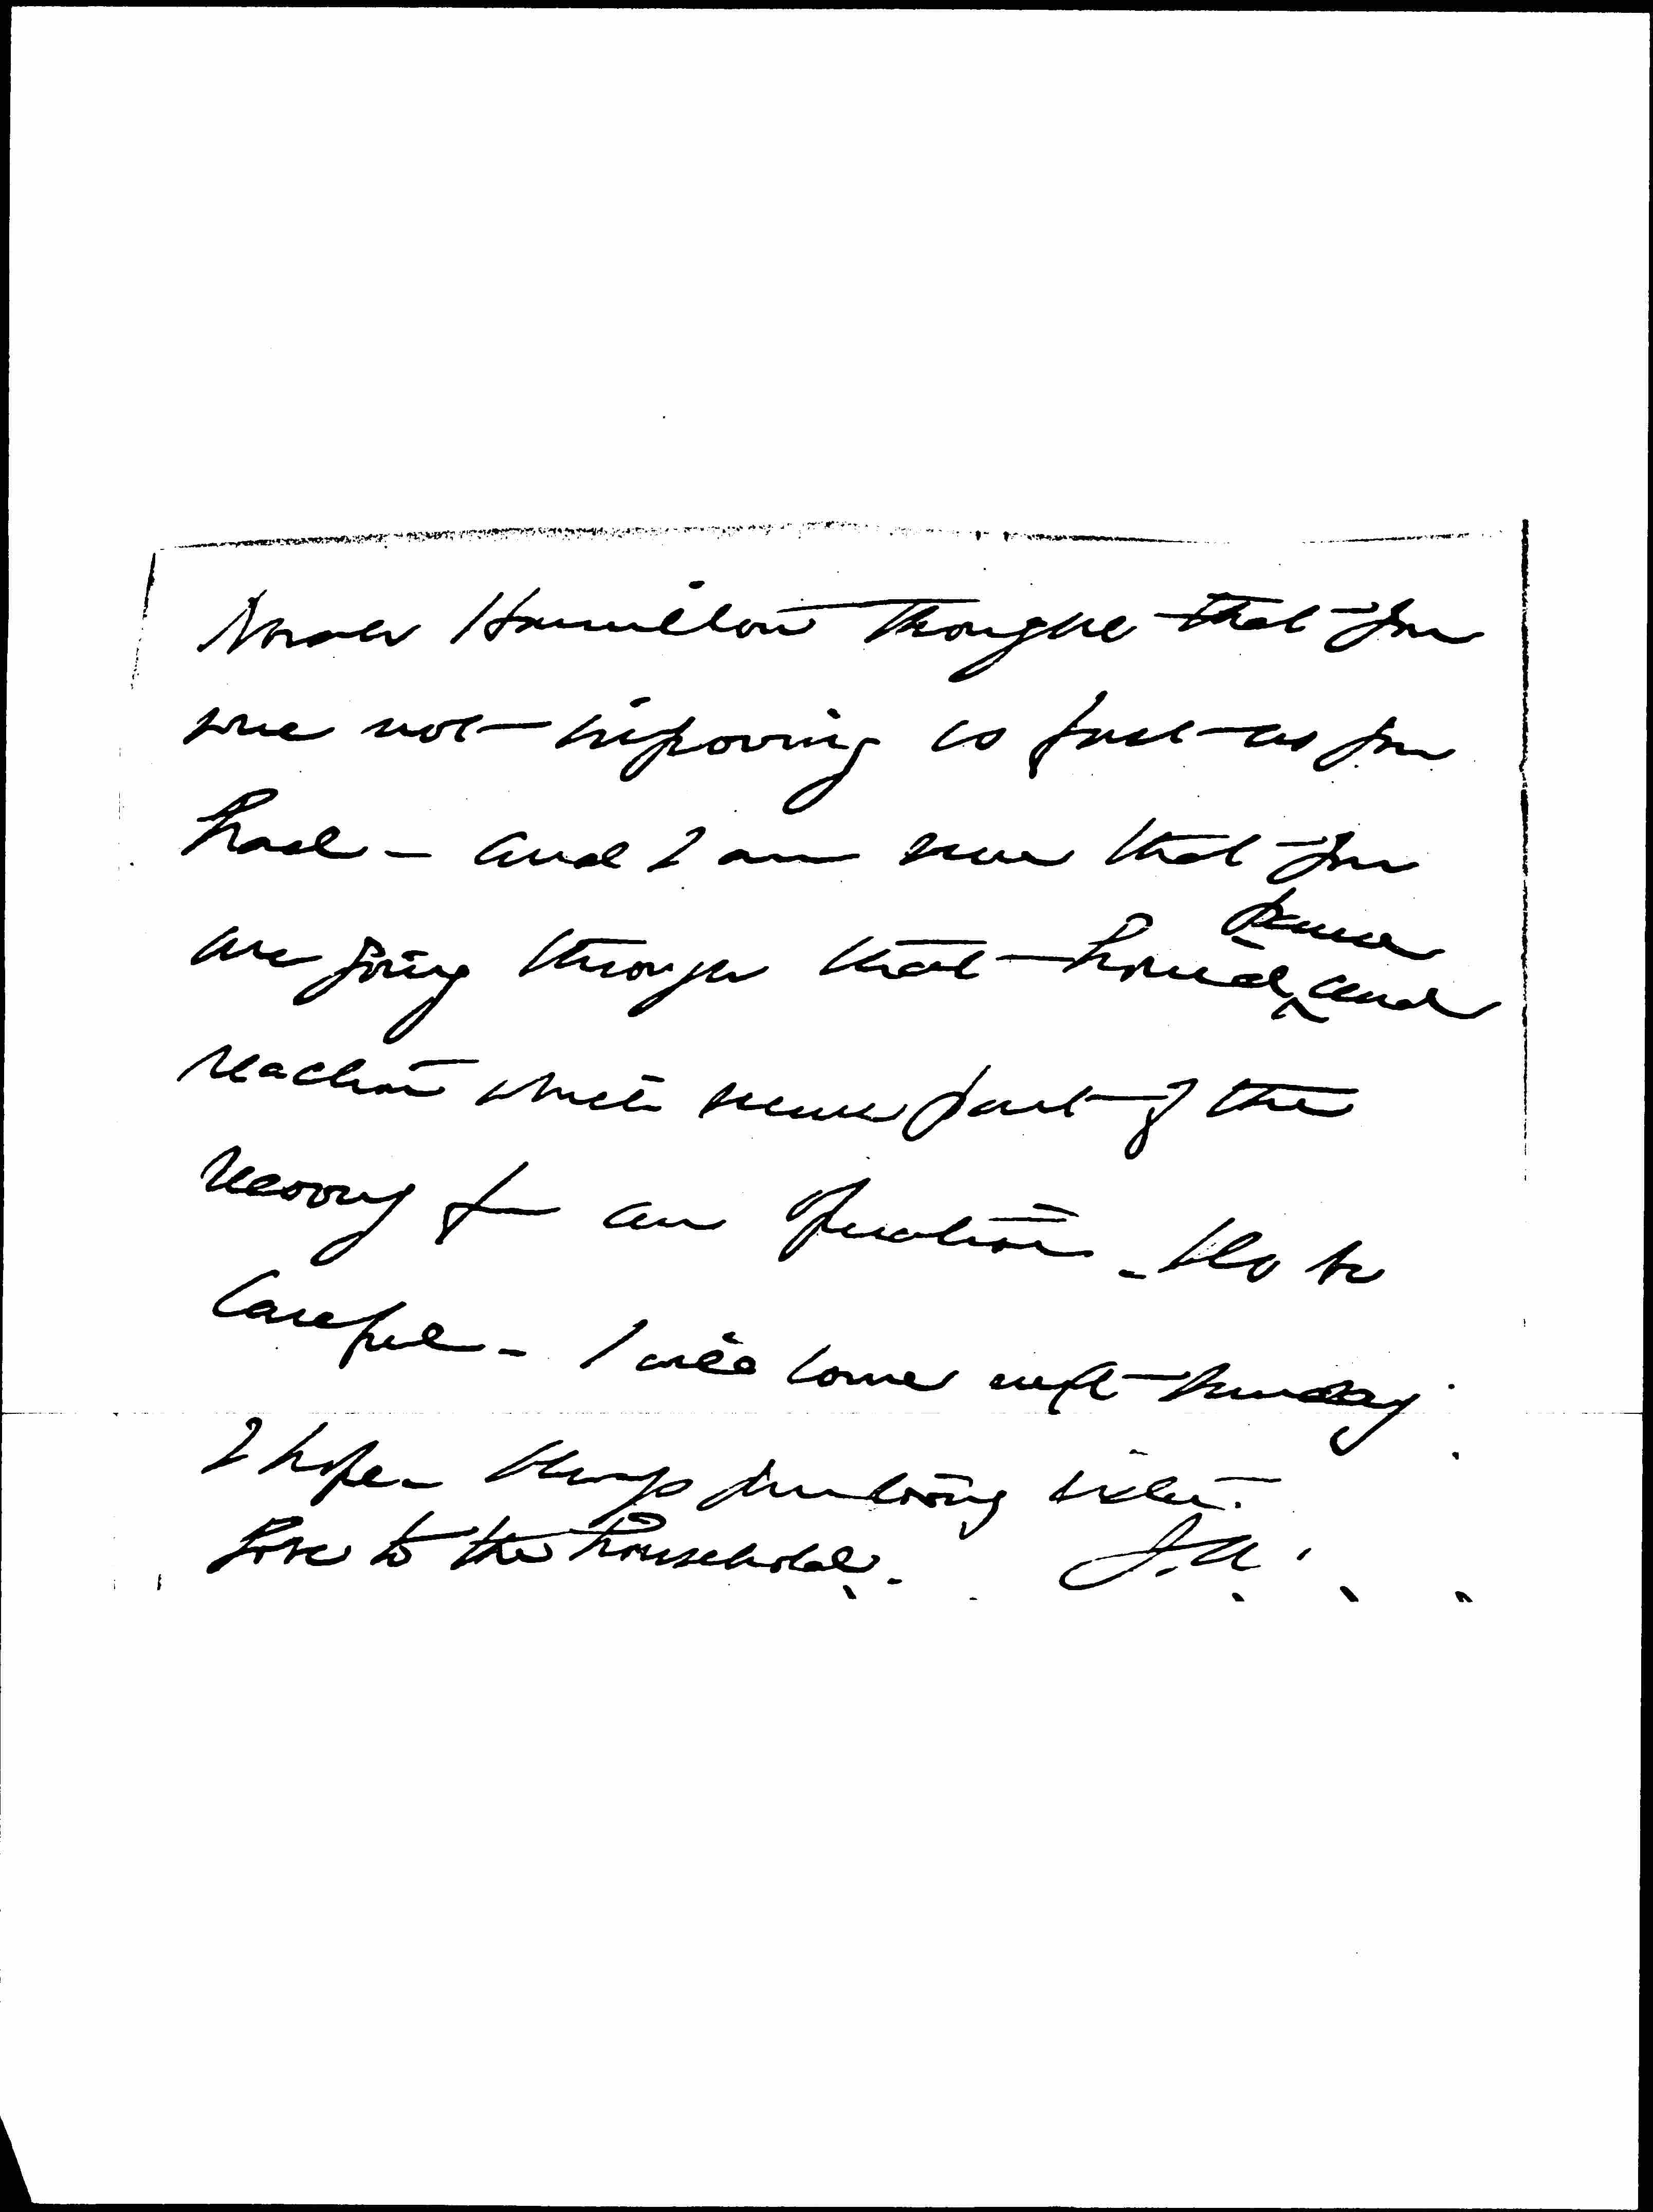 Norah Hamilton thought that you
were not improving as fast as you
had - and I am sure that you
are going through that horrid and
reaction which seems part of the
recovery from an operation - Do be
careful - I will come next Sunday
I hope - Always your loving sister.
Love to the household. J.A.